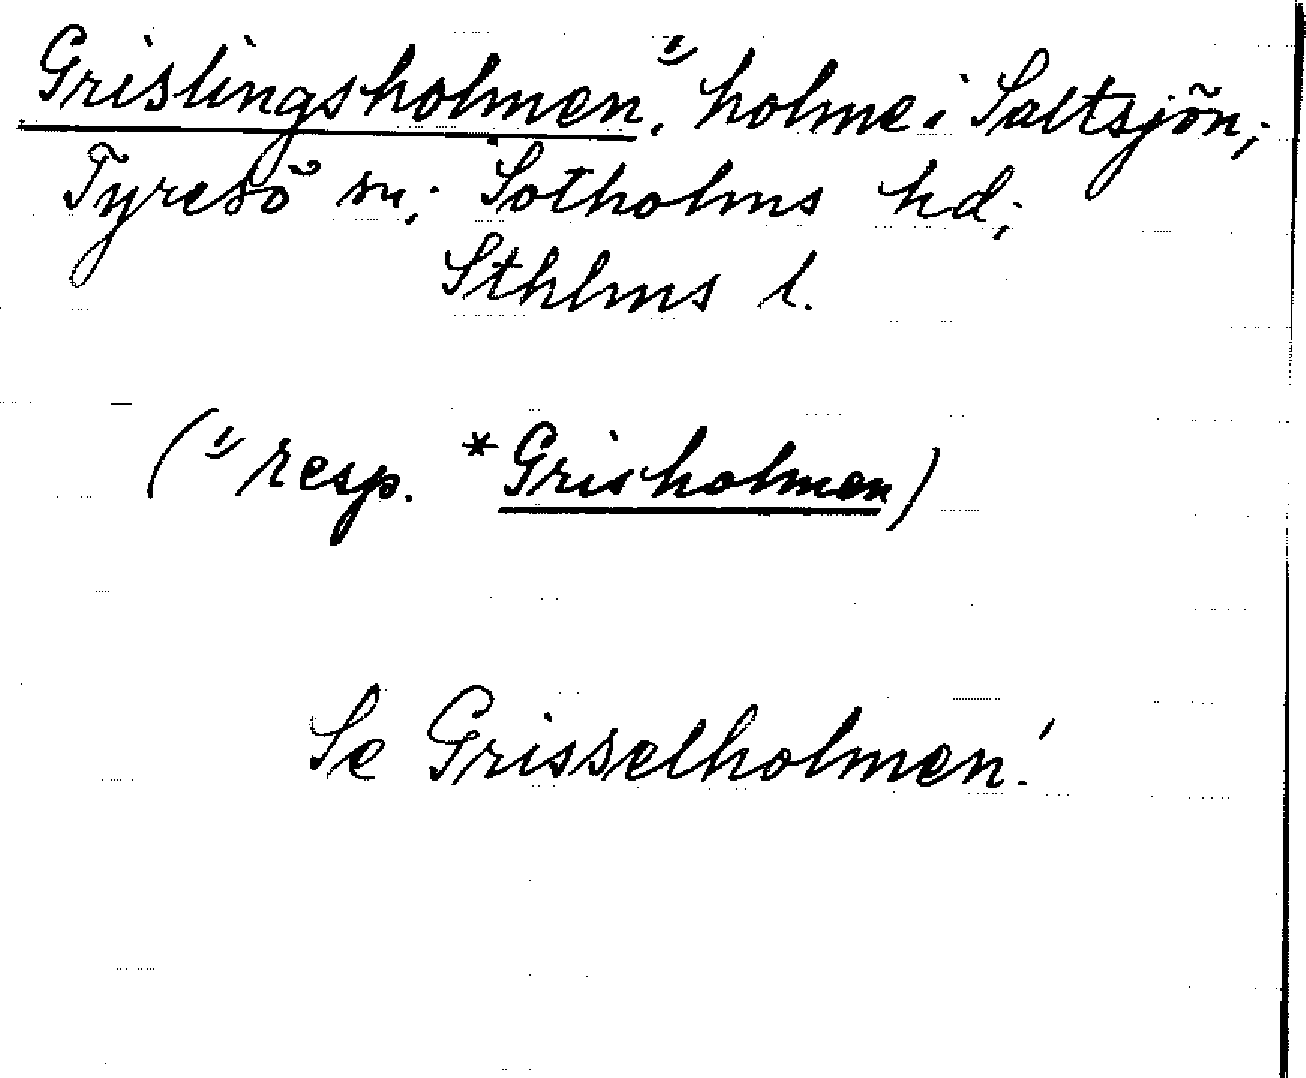 Grislingsholmen, 1) holme i Saltsjön;
Tyresö sn; Sotholms hd;
Sthlms l.
(1) resp. *Grisholmen)
Se Grisselholmen!